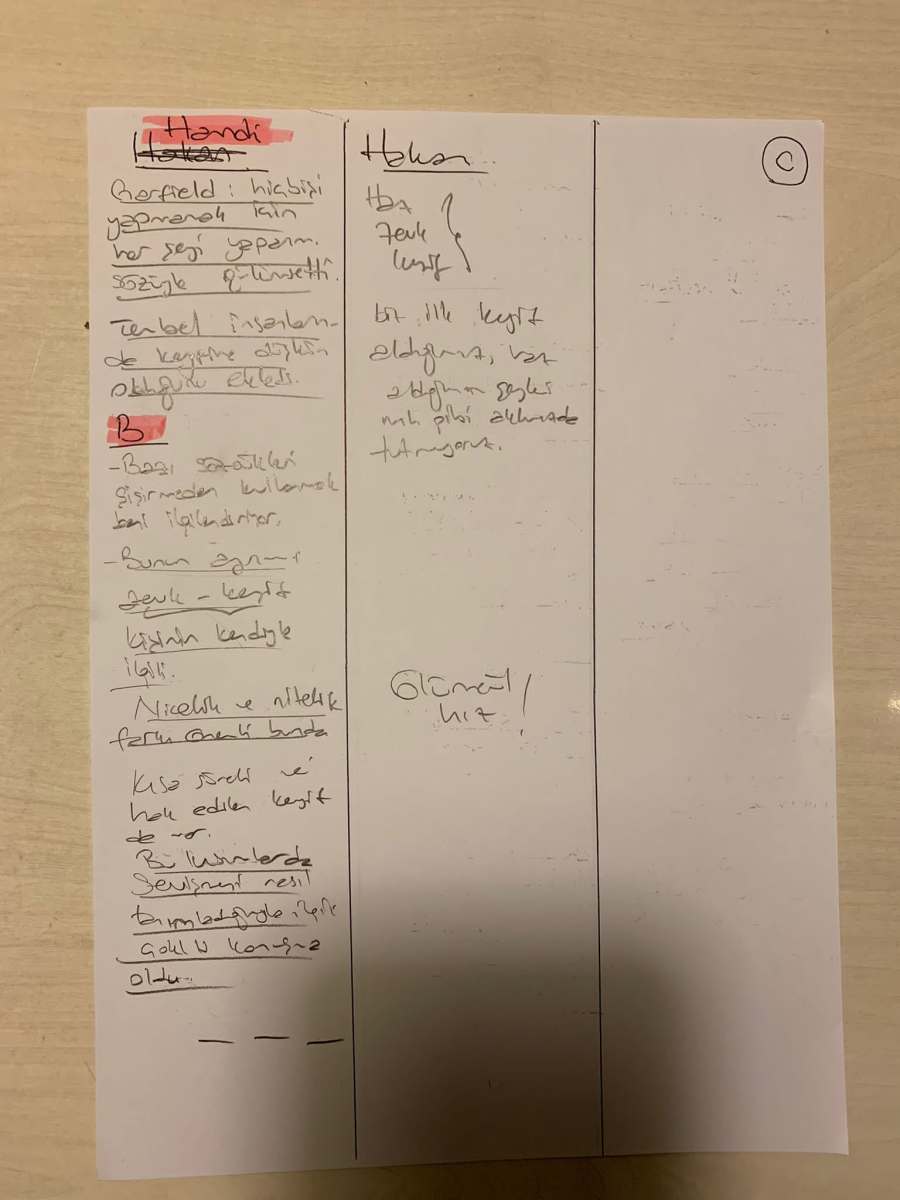 Hamdi
Hakan
Garfield : hiçbişi
yapmamak için
her şeyi yaparım.
sözüyle gülümsetti.
Tenbel insanların
de keyfine düşkün
olduğunu ekledi.
B
- Bazı sözcükleri
şişirmeden kullanmak
beni ilgilendiriyor.
- Bunun ayrımı
zevk - keyif
kişinin kendiyle
ilgili.
Nicelik ve nitelik
farkı önemli burada
Kısa süreli ve
hak edilen keyif
de var.
Bu kısımlarda
Sevişmeyi nasıl
tanımladığıyla ilgili
çoklu konuşma
oldu.
Hakan
Haz
Zevk
keyif
biz ilk keyif
aldığımız, haz
aldığımız şeyleri
gibi aklımızda
tutmuyoruz.
Ölümcül
hız !
C